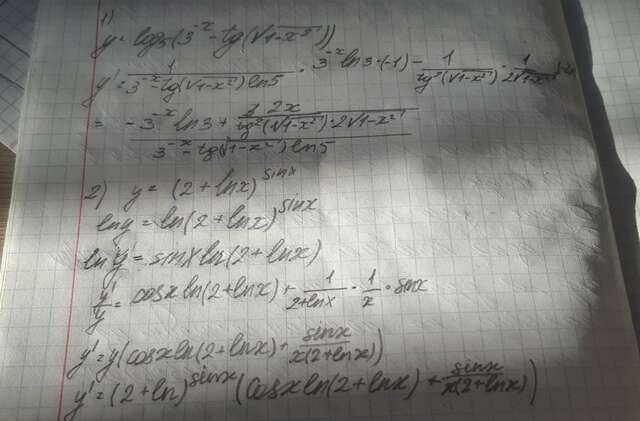 1)
y = log₅(3^(-x) - tg(√(1-x²)))
y' = 1/(3^(-x) - tg(√(1-x²)) ln5) · 3^(-x) ln3·(-1) - 1/(tg²(√(1-x²))) · 1/(2√(1-x²))
= (-3^(-x) ln3 + 2x/(tg²(√(1-x²))·2√(1-x²)))/(3^(-x) - tg(√(1-x²)) ln5)
2) y = (2+lnx)^(sinx)
lny = ln(2+lnx)^(sinx)
lny = sinx ln(2+lnx)
y'/y = cosx ln(2+lnx) + 1/(2+lnx) · 1/x · sinx
y' = y(cosx ln(2+lnx) + sinx/(x(2+lnx)))
y' = (2+ln)^(sinx) (cosx ln(2+lnx) + sinx/(x(2+lnx)))